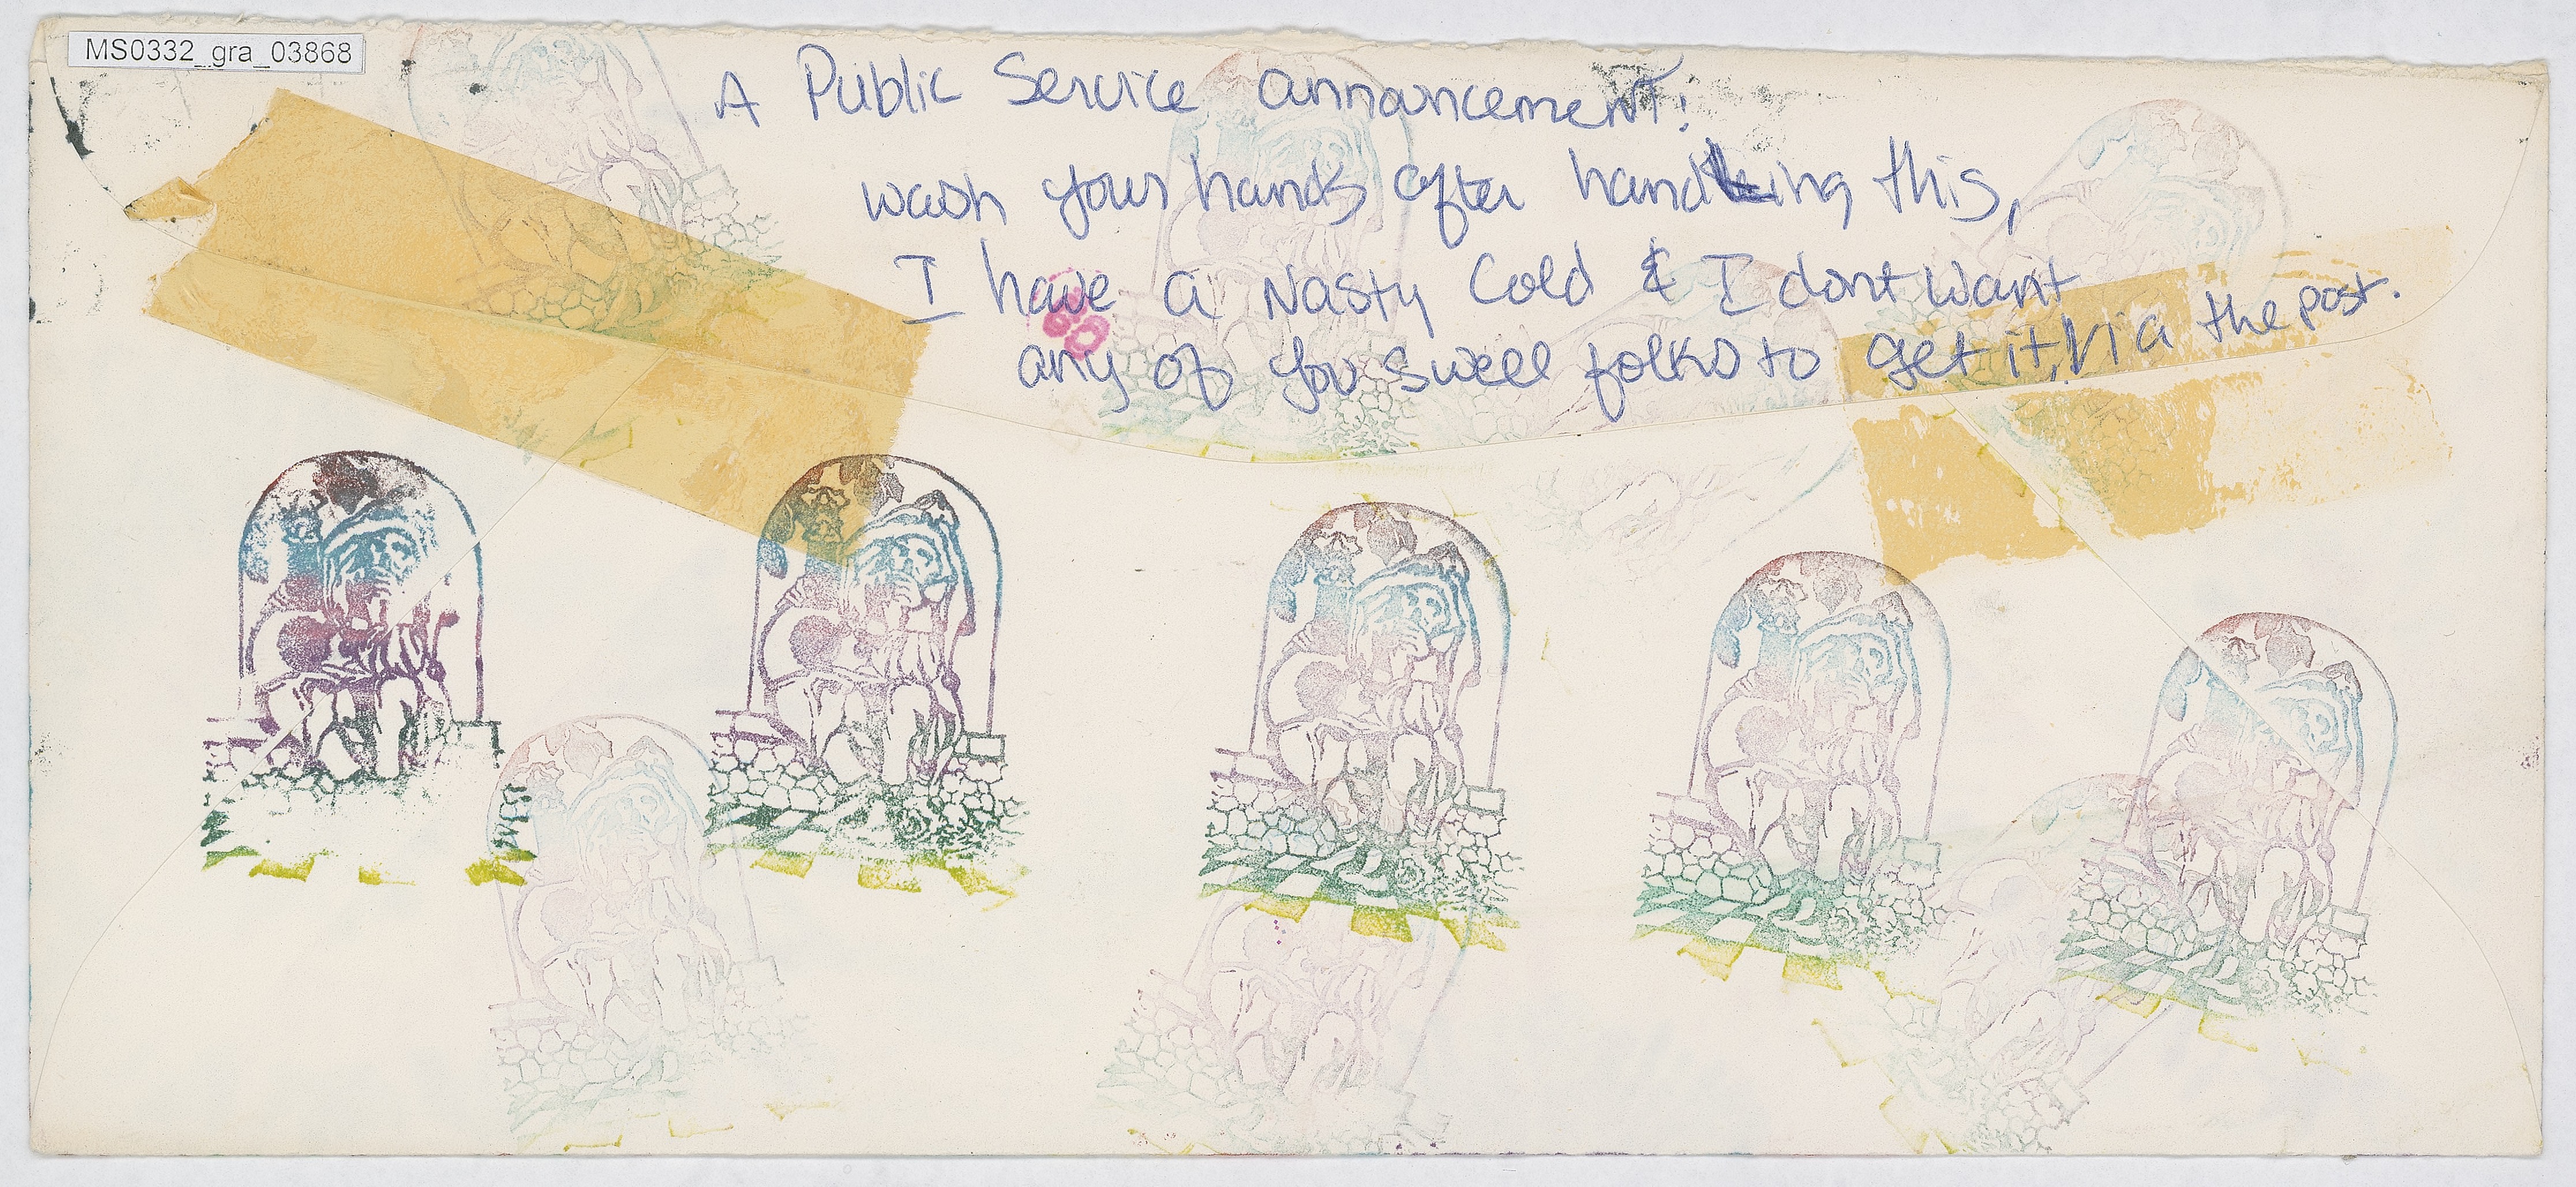 MS0332_gra_03868
A Public Service annancement!
wash your hands after handling this,
I have a Nasty Cold & I dont want
any of you swell folks to get it, Via the post.
60